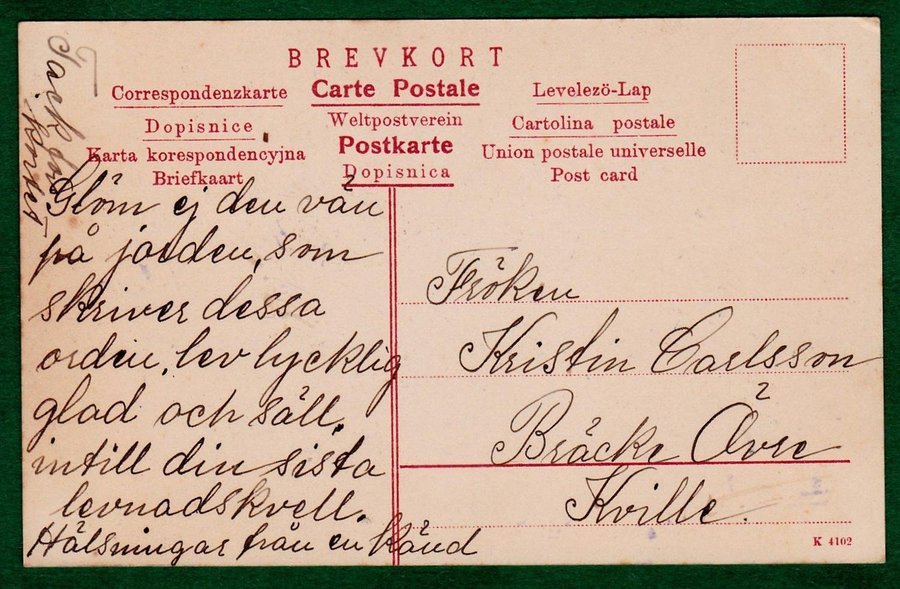 BREVKORT
Correspondenzkarte
Carte Postale
Levelezö-Lap
Dopisnice
Weltpostverein
Cartolina postale
Karta korespondencyjna
Postkarte
Union postale universelle
Briefkaart
Dopisnica
Post card
Tack för
kortet
Glöm ej den vän
på jorden, som
skriver dessa
orden, lev lycklig
glad och säll,
intill din sista
levnadskvell.
Hälsningar från en känd
Fröken
Kristin Carlsson
Bräcke Övre
Kville.
K 4102